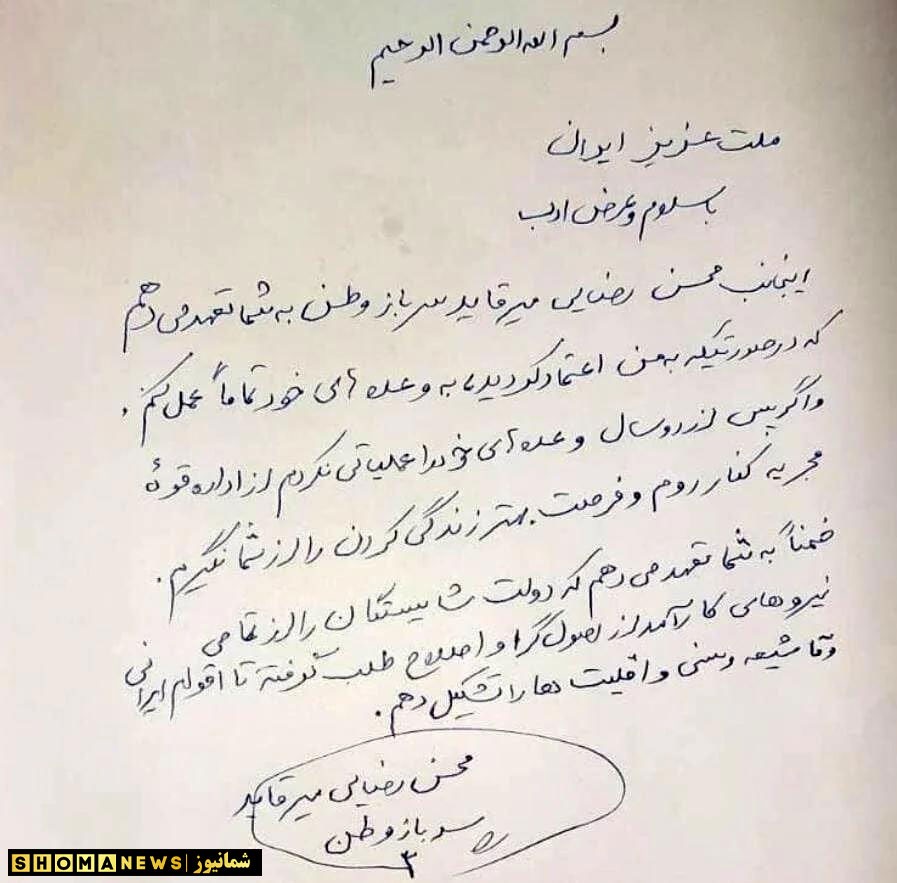 بسم الله الرحمن الرحیم
ملت عزیز ایران
با سلام و عرض ادب
اینجانب محسن رضایی میرقاید سرباز وطن به شما تعهد می دهم
که در صورتیکه به من اعتماد کردید، به وعده های خود تماماً عمل کنم.
و اگر پس از دو سال وعده های خود را عملیاتی نکردم از اداره قوهٔ
مجریه کنار روم و فرصت بهتر زندگی کردن را از شما نگیرم.
ضمناً به شما تعهد می دهم که دولت شایستگان را از تمامی
نیروهای کارآمد از اصول گرا و اصلاح طلب گرفته تا اقوام ایرانی
و تا شیعه و سنی و اقلیت ها را تشکیل دهم.
محسن رضایی میرقاید
سرباز وطن
۳
SHOMANEWS | شمانیوز